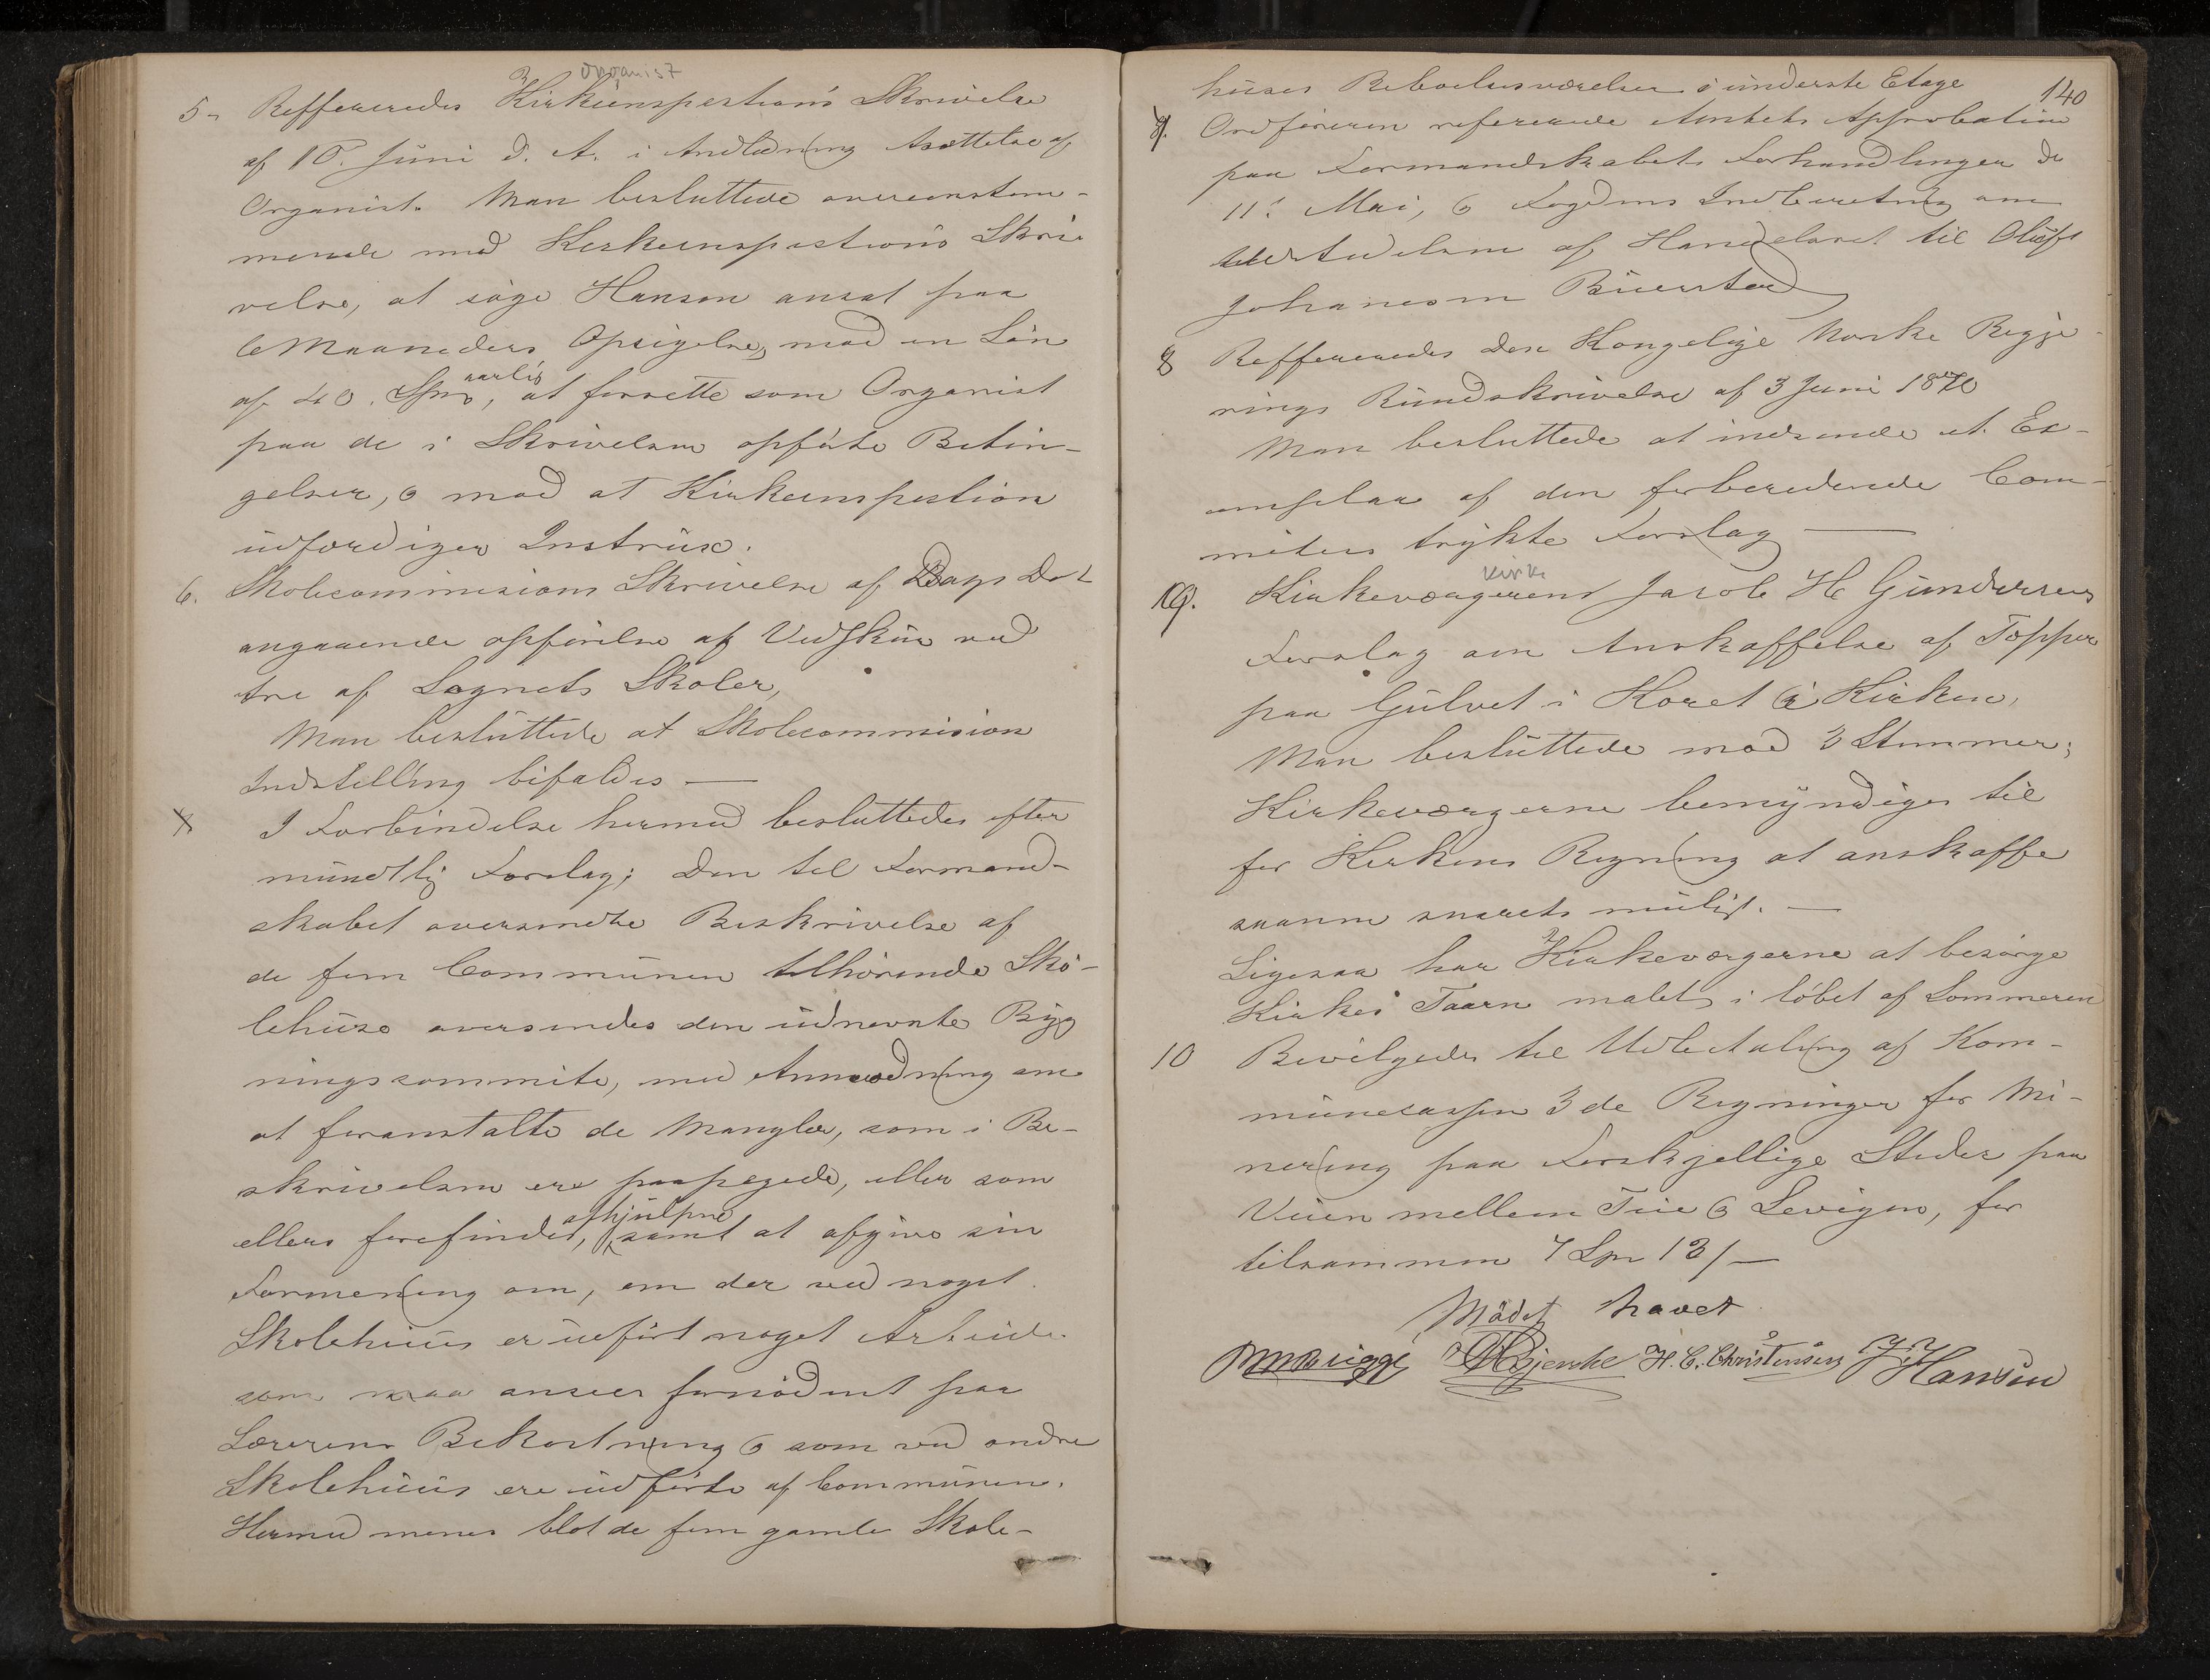 organist
5. Reffereredes Kirkeinspectionens Skrivelse
af 10. Juni d. A. i Anledning Ansættelse af
Organist. Man besluttede overenstem-
mende med Kirkeinspectionens Skri-
velse, at søge Hanson ansat paa
6 Maaneders Opsigelse, mod en Løn
af 40. Spd aarlig, at forrette som Organist
paa de i Skrivelsen opførte Betin-
gelser, o mod at Kirkeinspection
udfærdiger Instrux.
6. Skolecommisions Skrivelse af Dags Dat
angaaende opførelse af Vedskur ved
tre af Sognets Skoler,
Man besluttede at Skolecommision
Indstilling bifaldes —
I Forbindelse hermed besluttedes efter
mundtlig Forslag; Den til Formand-
skabet oversendte Beskrivelse af
de fem Communen tilhørende Sko-
lehuse oversendes den udnevnte Byg
ningscommite, med Anmodning om
at foranstalte de Mangler, som i Be-
skrivelsen ere paapegede, eller som
ellers forefindes, afhjulpne samt at afgive sin
Formening om, om der ved noget
Skolehuus er udført noget Arbeide
som maa ansees fornødent paa
Lærerens Bekostning o som ved andre
Skolehuus ere udførte af Communen.
Hermed menes blot de fem gamle Skole-
140
huses Beboelsesværelser i underste Etage
7. Ordføreren refererede Amtets Approbation
paa Formandskabets Forhandlinger de
11. Mai, o Fogdens Indberetning om
Meddelelsen af Handelsret til Oluf
Johanesen Buerstad
8 Reffereredes Den Kongelige Norske Regje-
rings Rundskrivelse af 3 Juni 1870
Man besluttede at indsende et Ex-
emplar af den forberedende Com-
mitees trykte Forslag —
kirke
9. Kirkeværgerens Jacob H Gundersens
Forslag om Anskaffelse af Tepper
paa Gulvet i Koret i Kirken,
Man besluttede mod 3 Stemmer;
Kirkeværgerne bemyndiges til
for Kirkens Regning at anskaffe
saanne snarets muligt. —
Ligesaa har Kirkeværgerne at besørge
Kirkes Taarn malet i løbet af Sommeren
10 Bevilgedes til Udbetaling af Kom-
munecassen 3 de Regninger for Mi-
nering paa Forskjellige Steder paa
Veien mellem Tveie o Sevigen, for
tilsammen 7 Spd 13/ —
Mødet hævet
H. C. Christensen Hansen